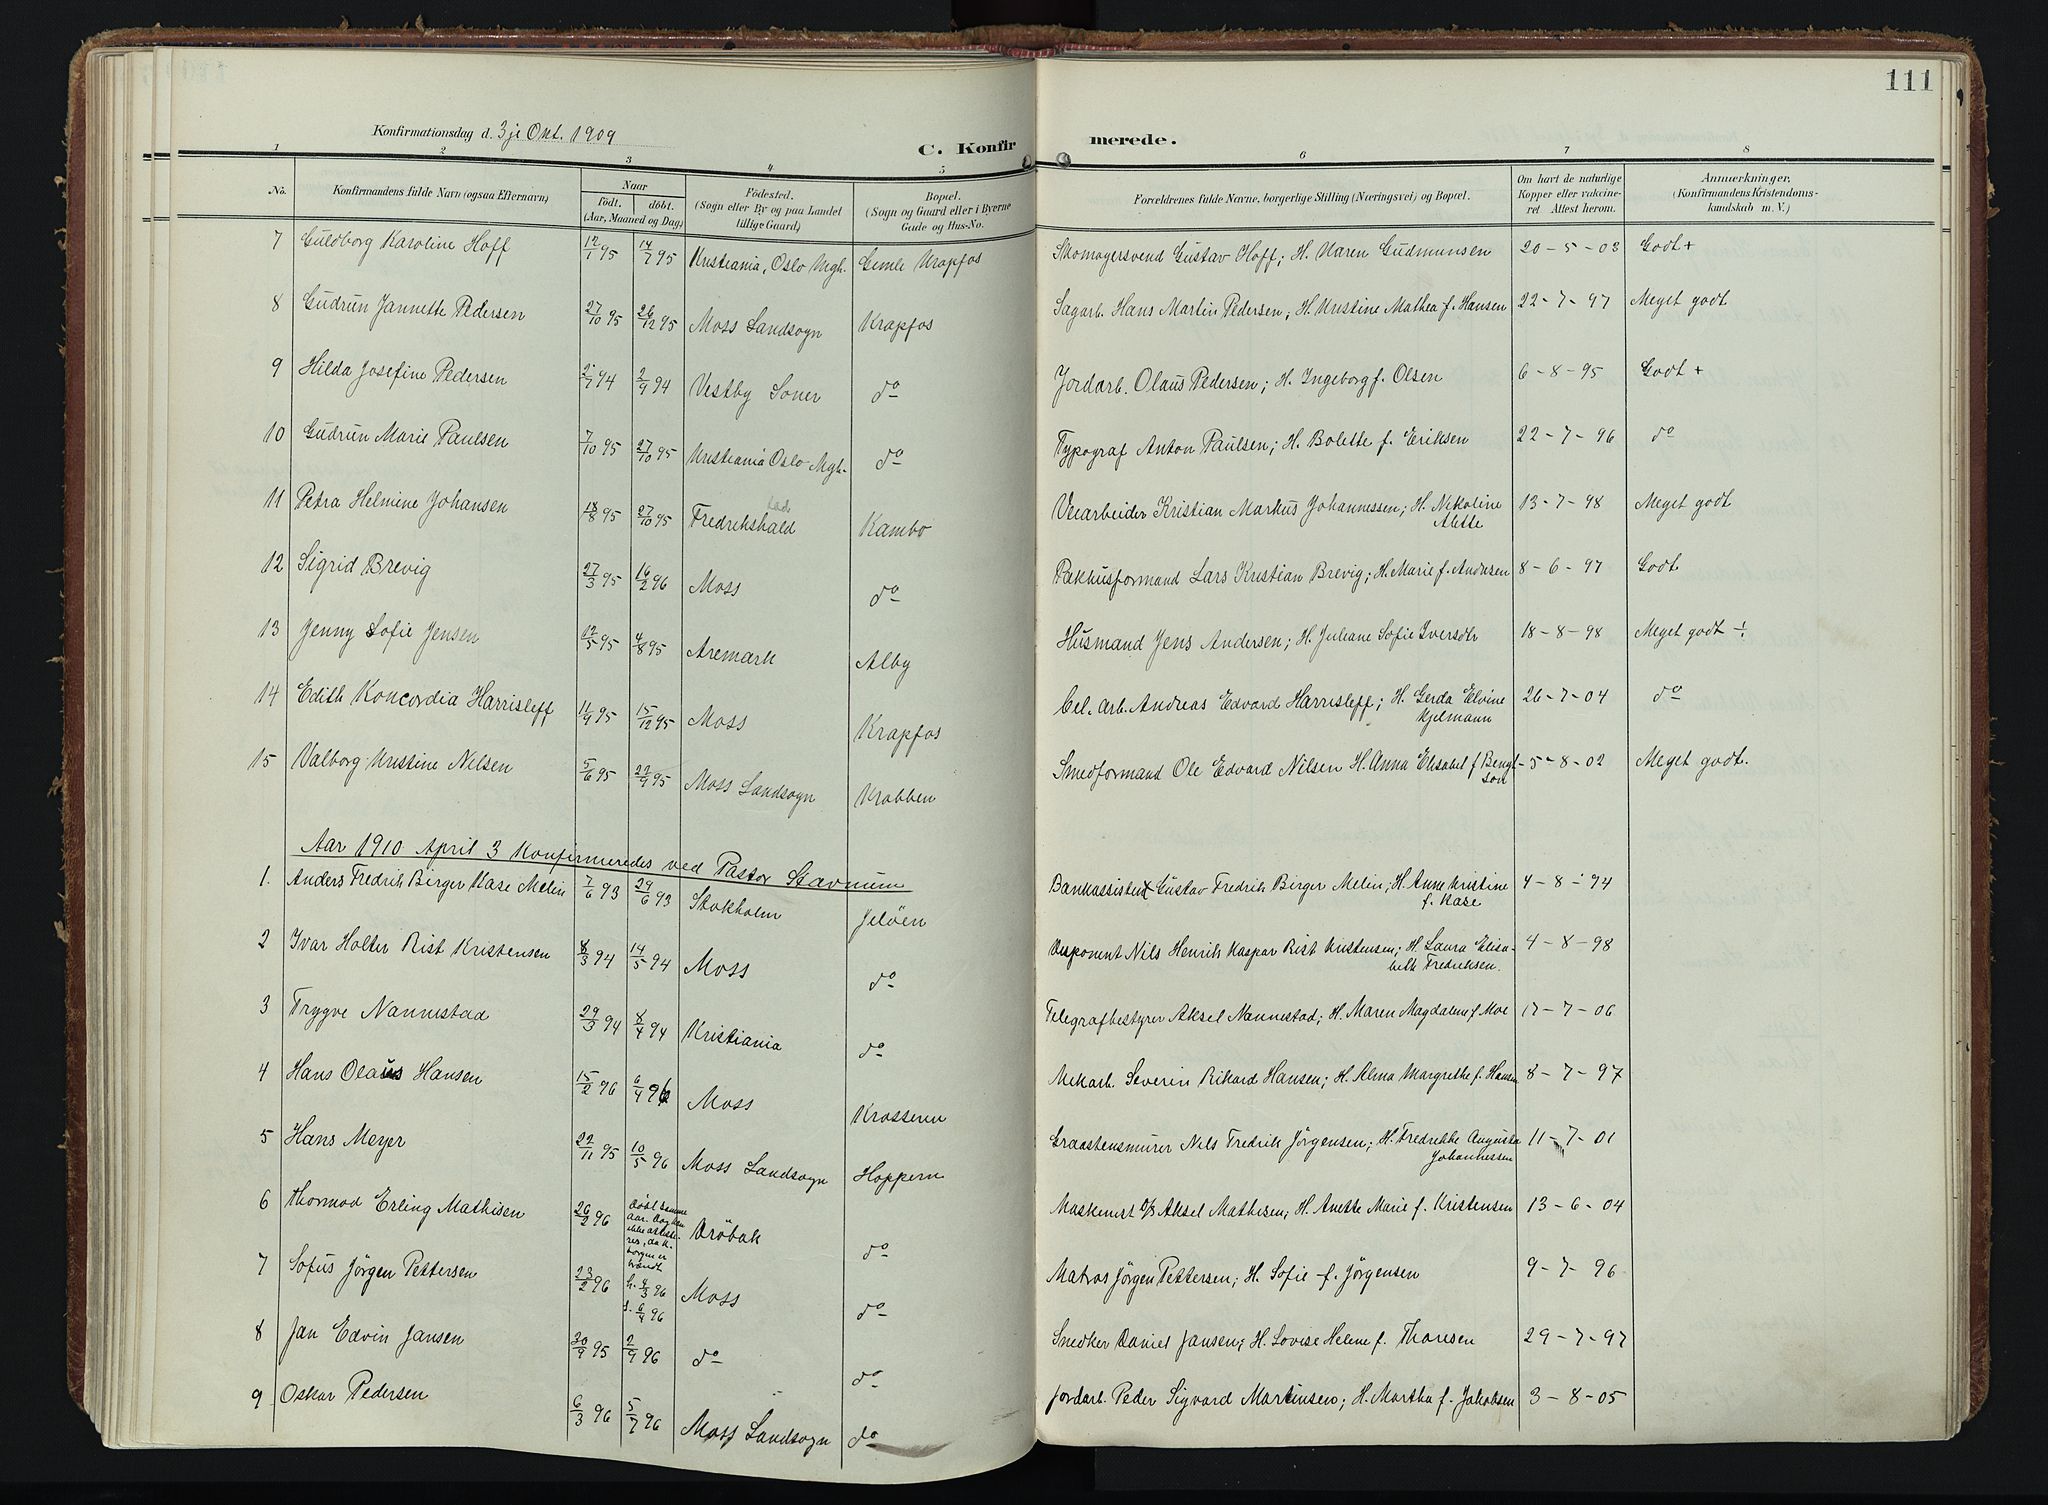 111
Konfirmationsdag d. 3je Okt. 1909
C. Konfirmerede.
1 2 3 4 5 6 7 8
No. Konfirmandens fulde Navn (ogsaa Efternavn) Naar født. døbt. (Aar, Maaned og Dag) Fødested. (Sogn eller By og paa Landet tillige Gaard) Bopæl. (Sogn og Gaard eller i Byerne Gade og Hus-No. Forældrenes fulde Navne, borgerlige Stilling (Næringsvei) og Bopæl. Om havt de naturlige Kopper eller vaccineret. Attest herom. Anmærkninger. (Konfirmandens Kristendomskundskab m. V.)
7 Guldborg Karoline Hoff 12/1 95 14/7 95 Kristiania, Oslo Mgh. Gimle Krapfos Skomagersvend Gustav Hoff; H. Karen Gudmunsen 20-5-03 Godt +
8 Gudrun Jannette Pedersen 27/10 95 26/12 95 Moss Landsogn Krapfos Sagarb. Hans Martin Pedersen; H. Kristine Mathea f. Hansen 22-7-97 Meget godt
9 Hilda Josefine Pedersen 2/7 94 2/9 94 Vestby Soner do Jordarb. Olaus Pedersen; H. Ingeborg f. Olsen 6-8-95 Godt +
10 Gudrun Marie Paulsen 7/10 95 27/10 95 Kristiania Oslo Mgh. do Typograf Anton Paulsen; H. Bolette f. Eriksen 22-7-96 do
11 Petra Helmine Johansen 18/8 95 27/10 95 Fredrikshald Kambo Veiarbeider Kristian Markus Johannessen; H. Nikoline Alette 13-7-98 Meget godt
12 Sigrid Brevig 27/3 95 16/2 96 Moss do Pakhusformand Lars Kristian Brevig; H. Marie f. Andersen 8-6-97 Godt
13 Jenny Sofie Jensen 12/5 95 4/8 95 Aremark Alby Husmand Jens Andersen; H. Juliane Sofie Iversdtr 18-8-98 Meget godt ÷
14 Edith Koncordia Harrisleff 11/9 95 15/12 95 Moss Krapfos Cel. arb. Andreas Edvard Harrisleff; H. Gerda Elvine Kjelmann 26-7-04 do
15 Valborg Kristine Nilsen 5/6 95 22/9 95 Moss Landsogn Krabben Smedformand Ole Edvard Nilsen H. Anna Elisabet f Bengtson 5-8-02 Meget godt.
Aar 1910 April 3 Konfirmeredes ved Pastor Stavnum
1. Anders Fredrik Birger Kase Melin 7/6 93 29/6 93 Stokholm Jeløen Bankassistent Gustav Fredrik Birger Melin; H. Anne Kristine f. Kase 4-8-94
2 Ivar Holter Rist Kristensen 8/3 94 14/5 94 Moss do Disponent Nils Henrik Kaspar Rist Kristensen; H. Laura Elisabeth Fredriksen. 4-8-98
3 Trygve Nannestad 29/3 94 8/4 94 Kristiania do Telegrafbestyrer Aksel Nannestad; H. Maren Magdalene f Moe 17-7-06
4 Hans Olaus Hansen 15/2 96 6/4 96 Moss Krosseren Mekarb. Severin Rikard Hansen; H. Alma Margrethe f. Hansen 8-7-97
5 Hans Meyer 22/11 95 10/5 96 Moss Landsogn Hoppern Graastensmurer Nils Fredrik Jørgensen; H. Fredrikke Augusta Johannessen 11-7-01
6 Thormod Erling Mathisen 26/2 96 Døbt samme Aar. Dog kan ikke attesteres, da K. bogen er brændt Drøbak do Maskinist o/s Aksel Mathisen; H. Anette Marie f. Kristensen 13-6-04
7 Sofus Jørgen Pettersen 23/2 96 h. 4/3 96 s. 6/4 96 Moss do Matros Jørgen Pettersen; H. Sofie f. Jørgensen 9-7-96
8 Jan Edvin Jansen 30/9 95 2/9 96 do do Snedker Daniel Jansen; H. Lovise Helene f. Thoresen 29-7-97
9 Oskar Pedersen 6/3 96 5/7 96 Moss Landsogn do Jordarb. Peder Sigvard Martinsen; H. Martha f. Jakobsen 3-8-05